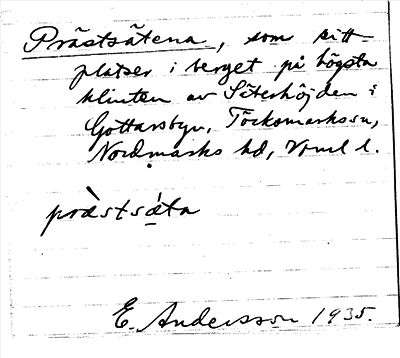 Prästsätena, som sitt-
platser i berget på högsta
klinten av Säterhöjden i
Gottarsbyn, Töcksmarks sn,
Nordmarks hd, Vrml l.
prästsäta
E. Andersson 1935.